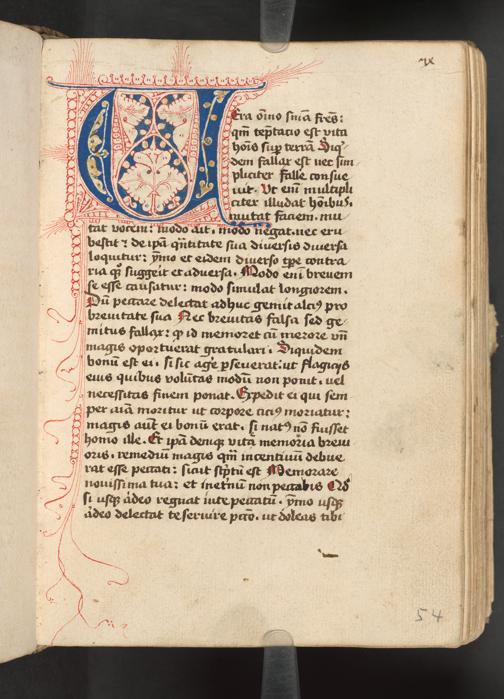 VEra om̄o sn̄ia fres:
qm̄ tēptacio est vita
hōis suꝑ terrā Siq͛
dem fallax est nec sim
pliciter falle consue
uit. Ut enī multipli
citer illudat hoībus.
mutat faciem. mu
tat vocem: modo ait. modo negat. nec eru
bescit de ipā q̄ntitate sua diversis diversa
loquitur: ymo et eidem diverso tꝑe contra
ria q͛ suggeit et adversa. Modo enī brevem
se esse causatur: modo simulat longiorem.
Dū peccare delectat adhuc gemit alicꝰ pro
brevitate sua Nec brevitas falsa sed ge
mitus fallax: ꝙ id memoret cū merore vn̄
magis oportuerat gratulari. Siquidem
bonū est ei. si sic agē ꝑseverat: ut flagicijs
eius quibus volūtas modū non ponit. vel
necessitas finem ponat. Expedit ei qui sem
per aīa moritur ut corpore citiꝰ moriatur:
magis aūt ei bonū erat. si natꝰ nō fuisset
homo ille. Et ipā denique vita memoria brevi
oris. remediū magis qm̄ incentivū debue
rat esse peccati: sicut sc̄ptū est Memorare
novissima tua: et in eternū non peccabis Qd͛
si usq͛ adeo regnat in te peccatū. ymo usq͛
adeo delectat te servire pctō. ut doleas tibi
54